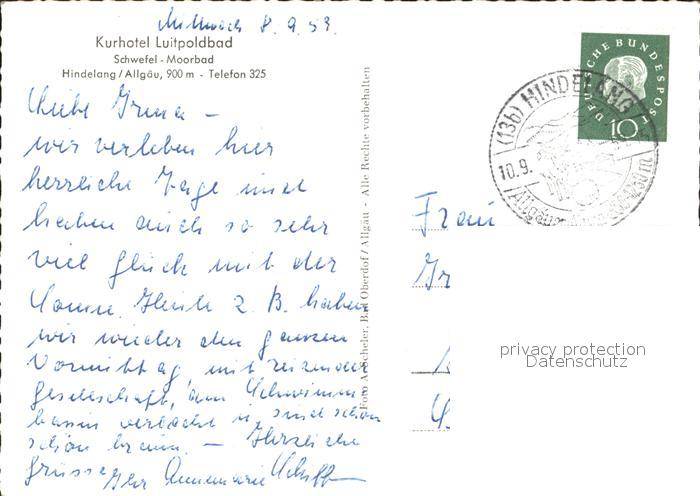 Mittwoch 8.9.59.
Kurhotel Luitpoldbad
Schwefel - Moorbad
Hindelang / Allgäu, 900 m - Telefon 325
Liebe Irma –
wir verleben hier
herrliche Tage und
haben auch so sehr
viel Glück mit der
Sonne. Heute z. B. haben
wir wieder den ganzen
Vormittag, mit reizender
Gesellschaft, am Schwimm-
bassin verbracht u. sind schon
schön braun. – Herzliche
Grüsse Ihr Annemarie
Alle Rechte vorbehalten
DEUTSCHE BUNDESPOST
10
(13b) HINDELANG
10.9.
Frau
privacy protection
Datenschutz